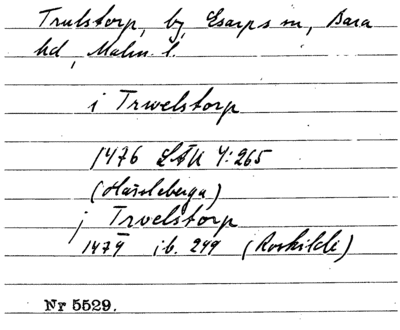 Trulstorp, by, Esarps sn, Bara
hd, Malm. l.
i Trwelstorp
1476 LÄU 4:265
(Hassleberga)
j Trvelstorp
1479 ib. 299 (Roskilde)
Nr 5529.